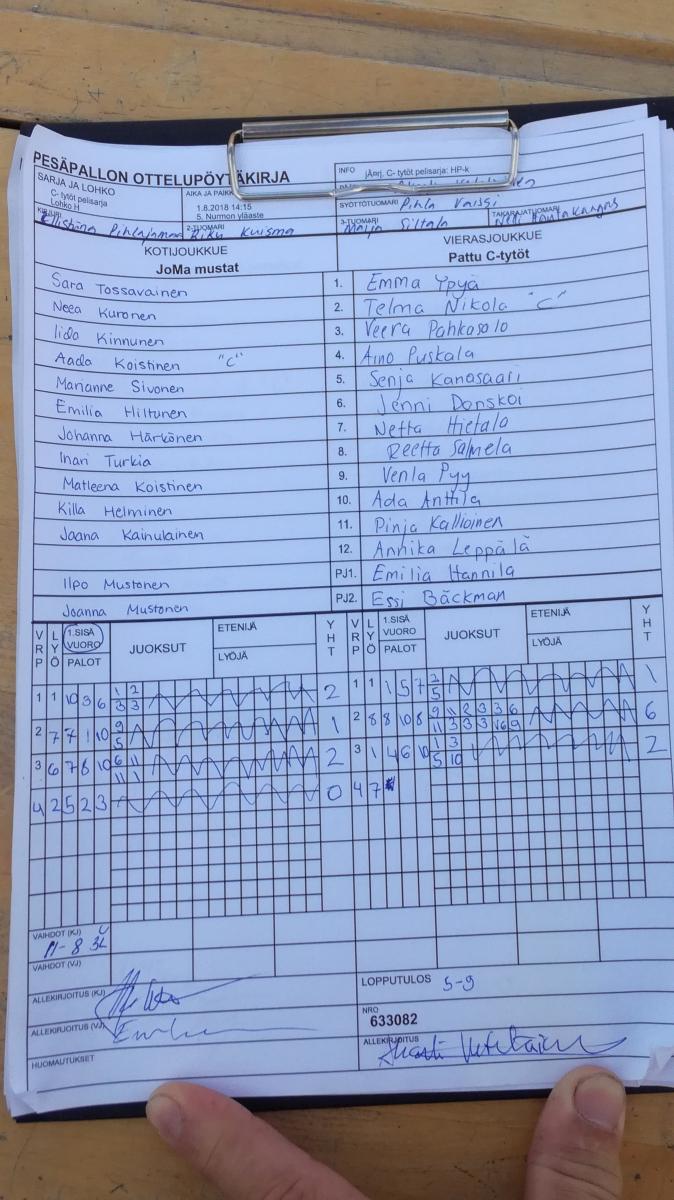 PESÄPALLON OTTELUPÖYTÄKIRJA
INFO jÄrj. C- tytöt pelisarja: HP-k
SARJA JA LOHKO
C- tytöt pelisarja
Lohko H
AIKA JA PAIKKA
1.8.2018 14:15
5. Nurmon yläaste
SYÖTTÖTUOMARI Pihla Vaissi
KIRJURI 2-TUOMARI Riku Kuisma
3-TUOMARI Maija Siltala
TAKARAJATUOMARI
KOTIJOUKKUE VIERASJOUKKUE
JoMa mustat Pattu C-tytöt
Sara Tossavainen 1. Emma Ypyä
Neea Kuronen 2. Telma Nikola "C"
Iida Kinnunen 3. Veera Pahkasalo
Aada Koistinen "C" 4. Aino Puskala
Marianne Sivonen 5. Senja Kanasaari
Emilia Hiltunen 6. Jenni Donskoi
Johanna Härkönen 7. Netta Hietala
Inari Turkia 8. Reetta Salmela
Matleena Koistinen 9. Venla Pyy
Killa Helminen 10. Ada Anttila
Jaana Kainulainen 11. Pinja Kallioinen
12. Annika Leppälä
Ilpo Mustonen PJ1. Emilia Hannila
Joanna Mustonen PJ2. Essi Bäckman
VRP LYÖ 1.SISÄ VUORO PALOT JUOKSUT ETENIJÄ LYÖJÄ YHT VRP LYÖ 1.SISÄ VUORO PALOT JUOKSUT ETENIJÄ LYÖJÄ YHT
1 1 10 3 6 1 2 2 1 1 1 5 7 2 1
3 3 5
2 7 7 1 10 9 1 2 8 8 10 8 9 11 2 3 3 6 6
5 11 3 3 3 9
3 6 7 8 10 6 11 2 3 1 4 6 10 1 3 2
11 1 5 10
4 2 5 2 3 0 4 7
VAIHDOT (KJ)
11-8
VAIHDOT (VJ)
ALLEKIRJOITUS (KJ)
LOPPUTULOS 5-9
ALLEKIRJOITUS (VJ)
NRO
633082
HUOMAUTUKSET
ALLEKIRJOITUS